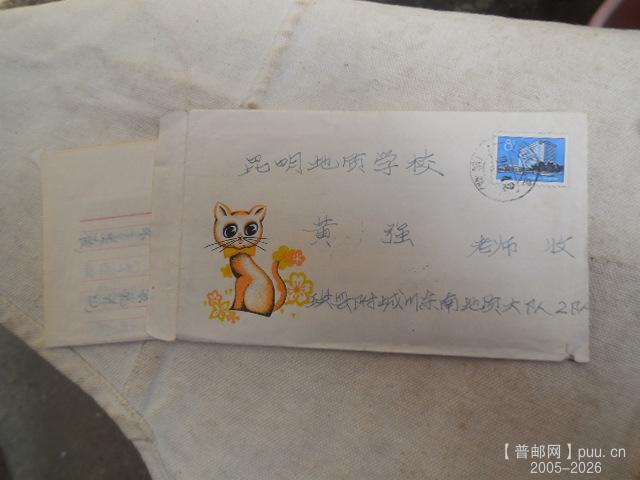 昆明地质学校
8
黄 强 老师 收
珙县附城川东南地质大队2队
【普邮网】puu.cn
2005-2026